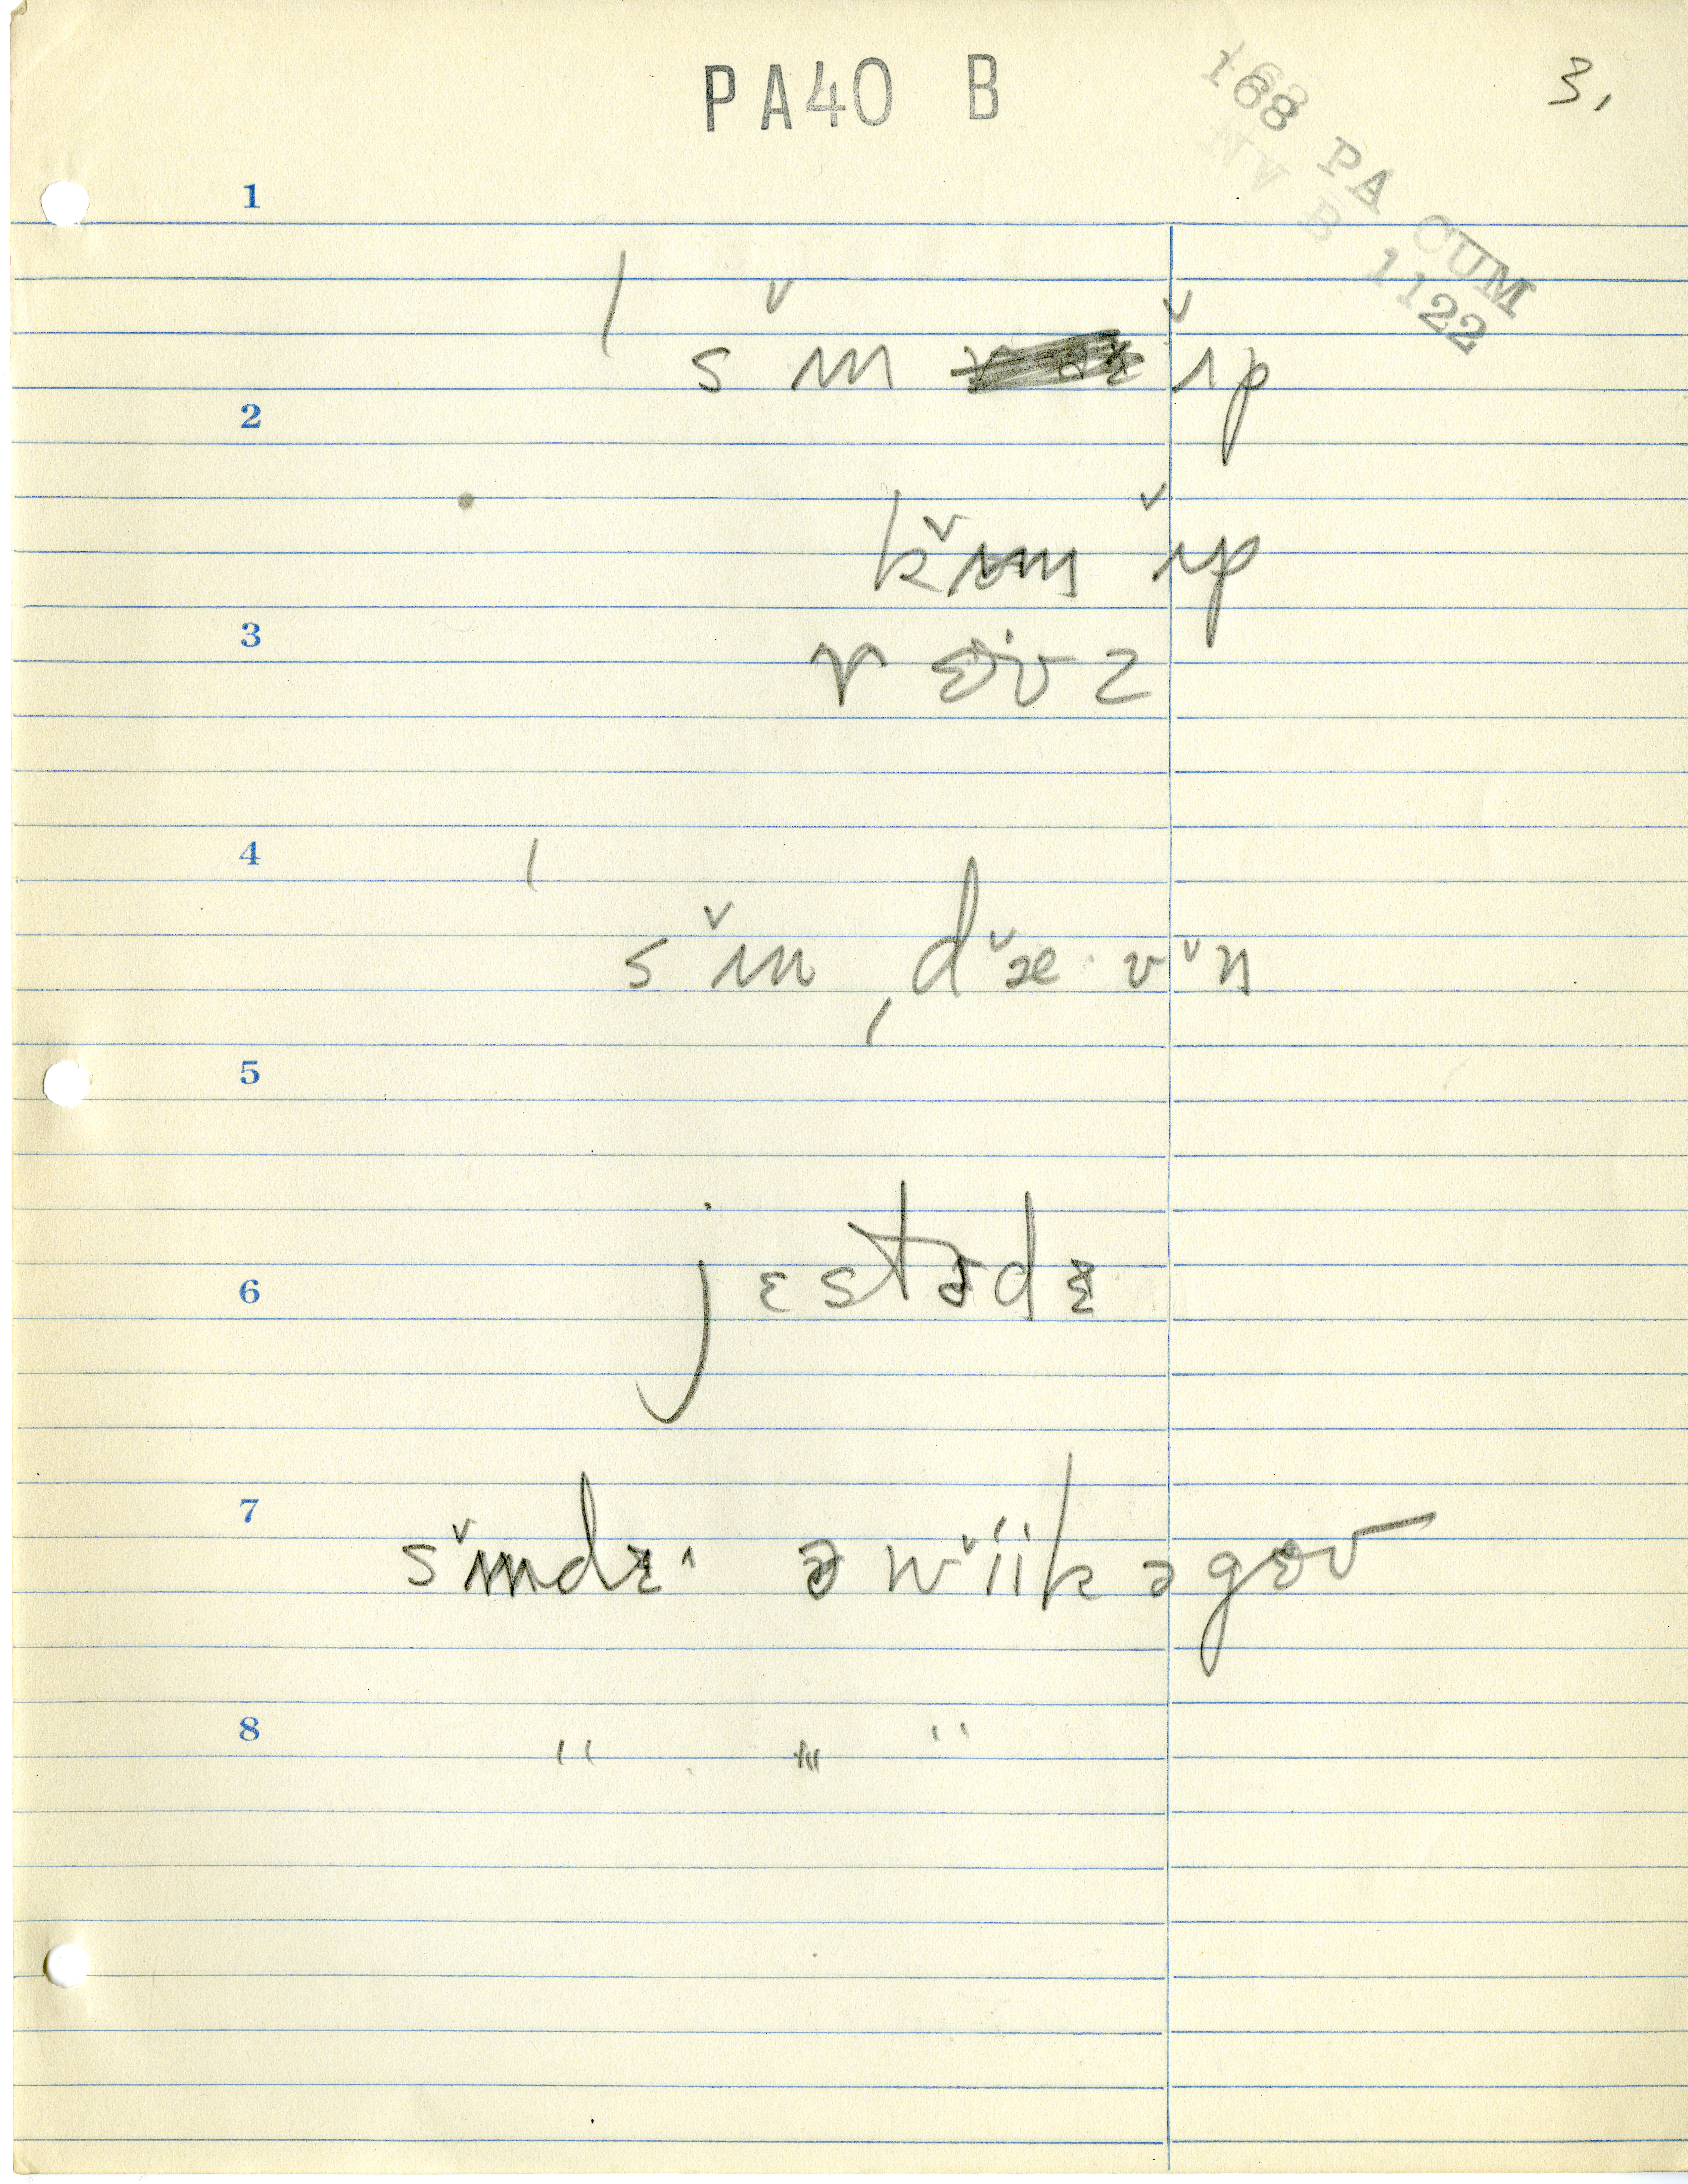 PA40 B
3.
168 PA CUM
NV B 1122
1
ˈsʌ̌n ʌ̌p
2
kʌ̌m ʌ̌p
3
rɛʊz
4
ˈsʌ̌n ˌdæ̌·vʌ̌n
5
6
jɛstədɛ
7
sʌ̌ndɛ· ə wǐik əgɛʊ
8
" " "